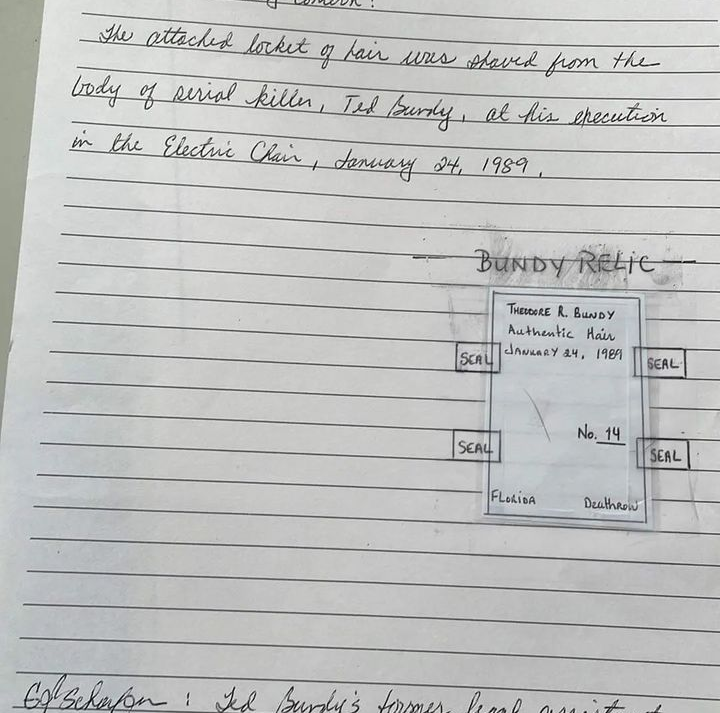 The attached locket of hair was shaved from the
body of serial killer, Ted Bundy, at his execution
in the Electric Chair, January 24, 1989.
BUNDY RELIC
THEODORE R. BUNDY
Authentic Hair
JANUARY 24, 1989
SEAL
SEAL
No. 14
SEAL
SEAL
FLORIDA Deathrow
: Ted Bundy's former legal